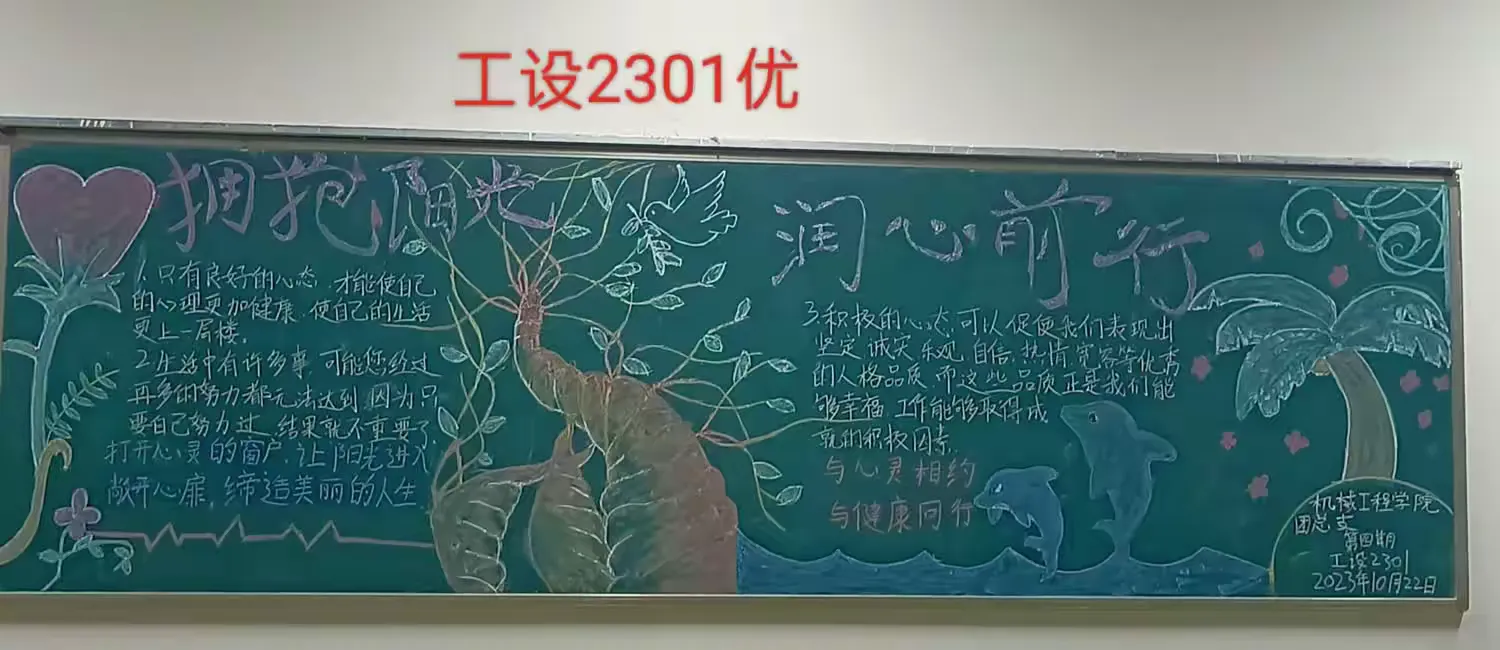 工设2301优
拥抱阳光
润心前行
1.只有良好的心态,才能使自己
的心理更加健康,使自己的生活
更上一层楼。
2.生活中有许多事,可能您经过
再多的努力都无法达到,因为只
要自己努力过,结果就不重要了
打开心灵的窗户,让阳光进入
敞开心扉,缔造美丽的人生
3.积极的心态,可以促使我们表现出
坚定,诚实,乐观,自信,热情,宽容等优秀
的人格品质,而这些品质正是我们能
够幸福,工作能够取得成
就的积极因素.
与心灵相约
与健康同行
机械工程学院
团总支
第四期
工设2301
2023年10月22日